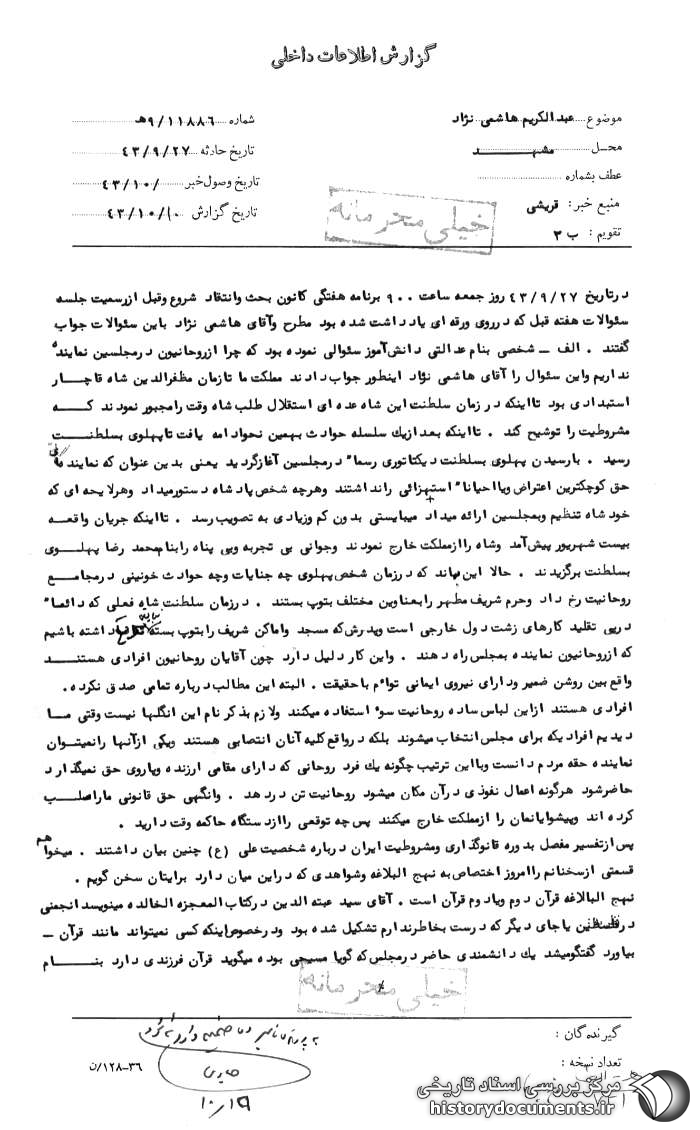 گزارش اطلاعات داخلی
موضوع عبدالکریم هاشمی نژاد
شماره ۹/۱۱۸۸۶هـ
محـل مشهـــد
تاریخ حادثه ۴۳/۹/۲۷
عطف بشماره
تاریخ وصول خبر ۴۳/۱۰/
منبع خبر: قریشی
تاریخ گزارش ۴۳/۱۰/۱۰
تقویم : ب ۳
خیلی محرمانه
درتاریخ ۴۳/۹/۲۷ روز جمعه ساعت ۹۰۰ برنامه هفتگی کانون بحث وانتقاد شروع وقبل ازرسمیت جلسه
سئوالات هفته قبل که درروی ورقه ای یادداشت شده بود مطرح وآقای هاشمی نژاد باین سئوالات جواب
گفتند . الف ــ شخصی بنام عدالتی دانش‌آموز سئوالی نموده بود که چرا ازروحانیون درمجلسین نماینده
نداریم واین سئوال را آقای هاشمی نژاد اینطور جواب دادند مملکت ما تازمان مظفرالدین شاه قاچار
استبدادی بود تااینکه در زمان سلطنت این شاه عده ای استقلال طلب شاه وقت رامجبور نمودند کـــه
مشروطیت را توشیح کند . تااینکه بعد ازیک سلسله حوادث بهمین نحوادامه یافت تاپهلوی بسلطنـــت
رسید . بارسیدن پهلوی بسلطنت دیکتاتوری رسماً درمجلسین آغازگردید یعنی بدین عنوان که نماینده
حق کوچکترین اعتراض ویااحیاناً استهزائی رانداشتند وهرچه شخص پادشاه دستورمیداد وهرلایحه ای که
خود شاه تنظیم وبمجلسین ارائه میداد میبایستی بدون کم وزیادی به تصویب رسد . تااینکه جریان واقعــه
بیست شهریور پیش‌آمد وشاه راازمملکت خارج نمودند وجوانی بی تجربه وبی پناه رابنام محمد رضا پهلــوی
بسلطنت برگزیدند . حالا این بماند که درزمان شخص پهلوی چه جنایات وچه حوادث خونینی درمجامــع
روحانیت رخ داد وحرم شریف مطهر رابعناوین مختلف بتوپ بستند . درزمان سلطنت شاه فعلی که دائماً
درپی تقلید کارهای زشت دول خارجی است وپدرش‌که مسجد واماکن شریف رابتوپ بسته نباید توقع داشته باشیم
که ازروحانیون نماینده بمجلس راه دهند . واین کار دلیل دارد چون آقایان روحانیون افرادی هستنـــد
واقع بین روشن ضمیر ودارای نیروی ایمانی توام باحقیقت . البته این مطالب درباره تمامی صدق نکرده .
افرادی هستند ازاین لباس ساده روحانیت سوء استفاده میکنند ولازم بذکر نام این انگلها نیست وقتی مــا
دیدیم افرادیکه برای مجلس انتخاب میشوند بلکه درواقع کلیه آنان انتصابی هستند ویکی ازآنها رانمیتوان
نماینده حقه مردم دانست وبااین ترتیب چگونه یك فرد روحانی که دارای مقامی ارزنده وپاروی حق نمیگذارد
حاضرشود هرگونه اعمال نفوذی درآن مکان میشود روحانیت تن دردهد . وانگهی حق قانونی ماراصلـــب
کرده اند وپیشوایانمان را ازمملکت خارج میکنند پس چه توقعی راازدستگاه حاکمه وقت دارید .
پس ازتفسیر مفصل بدوره قانوگذاری ومشروطیت ایران درباره شخصیت علی (ع) چنین بیان داشتند . میخواهم
قسمتی ازسخنانم راامروز اختصاص به نهج البلاغه وشواهدی که دراین میان دارد برایتان سخن گویم .
نهج البالاغه قرآن دوم ویادوم قرآن است . آقای سید عبته الدین درکتاب المعجزه الخالده مینویسد انجمنی
درفلسطین یاجای دیگر که درست بخاطرندارم تشکیل شده بود ودرخصوص‌اینکه کسی نمیتواند مانند قرآن ــ
بیاورد گفتگومیشد یك دانشمندی حاضر درمجلس‌که گویا مسیحی بوده میگوید قرآن فرزندی دارد بنــــام
خیلی محرمانه
گیرندگان :
تعداد نسخه :
۳۶-۱۲۸/ن
۱۰/۱۹
مرکز بررسی اسناد تاریخی
historydocuments.ir